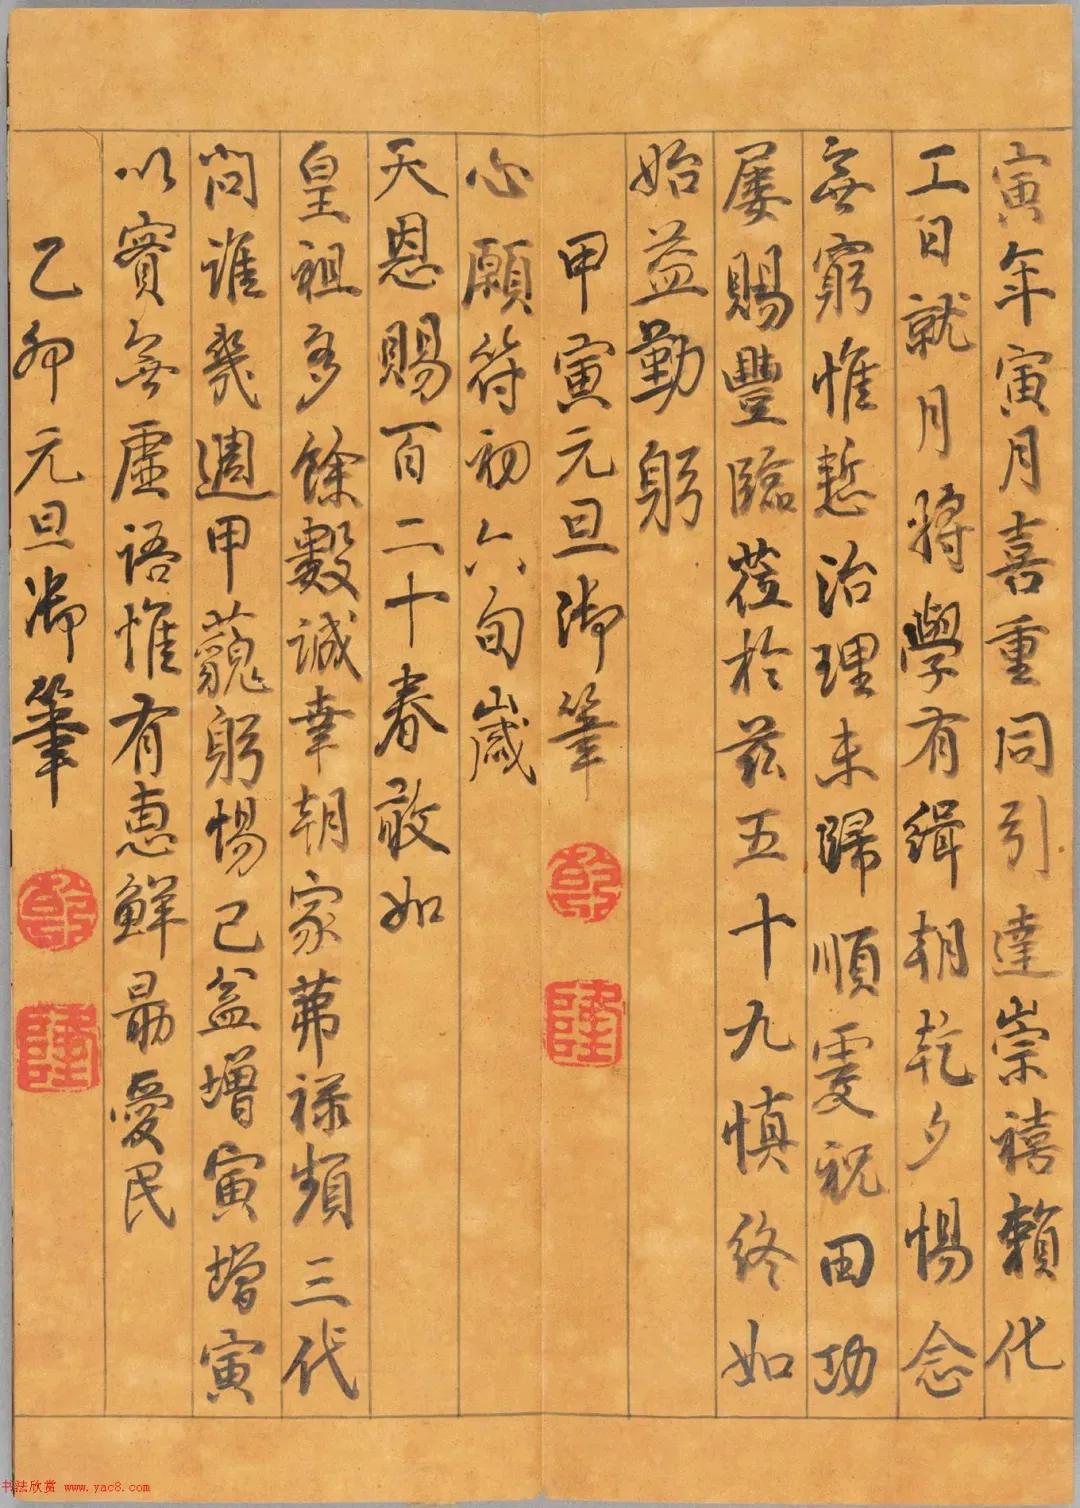 寅年寅月喜重同引達崇禧賴化
工日就月將學有緝朝乾夕惕念
無窮惟慙治理未歸順虔祝田功
屢賜豐臨蒞於茲五十九慎終如
始益勤躬
甲寅元旦御筆
乾
隆
心願符初六旬歲
天恩賜百二十春敢如
皇祖多餘數誠幸朝家茀祿頻三代
問誰幾週甲藐躬惕已益增寅增寅
以實無虛語惟有惠鮮勗愛民
乙卯元旦御筆
乾
隆
书法欣赏 www.yac8.com